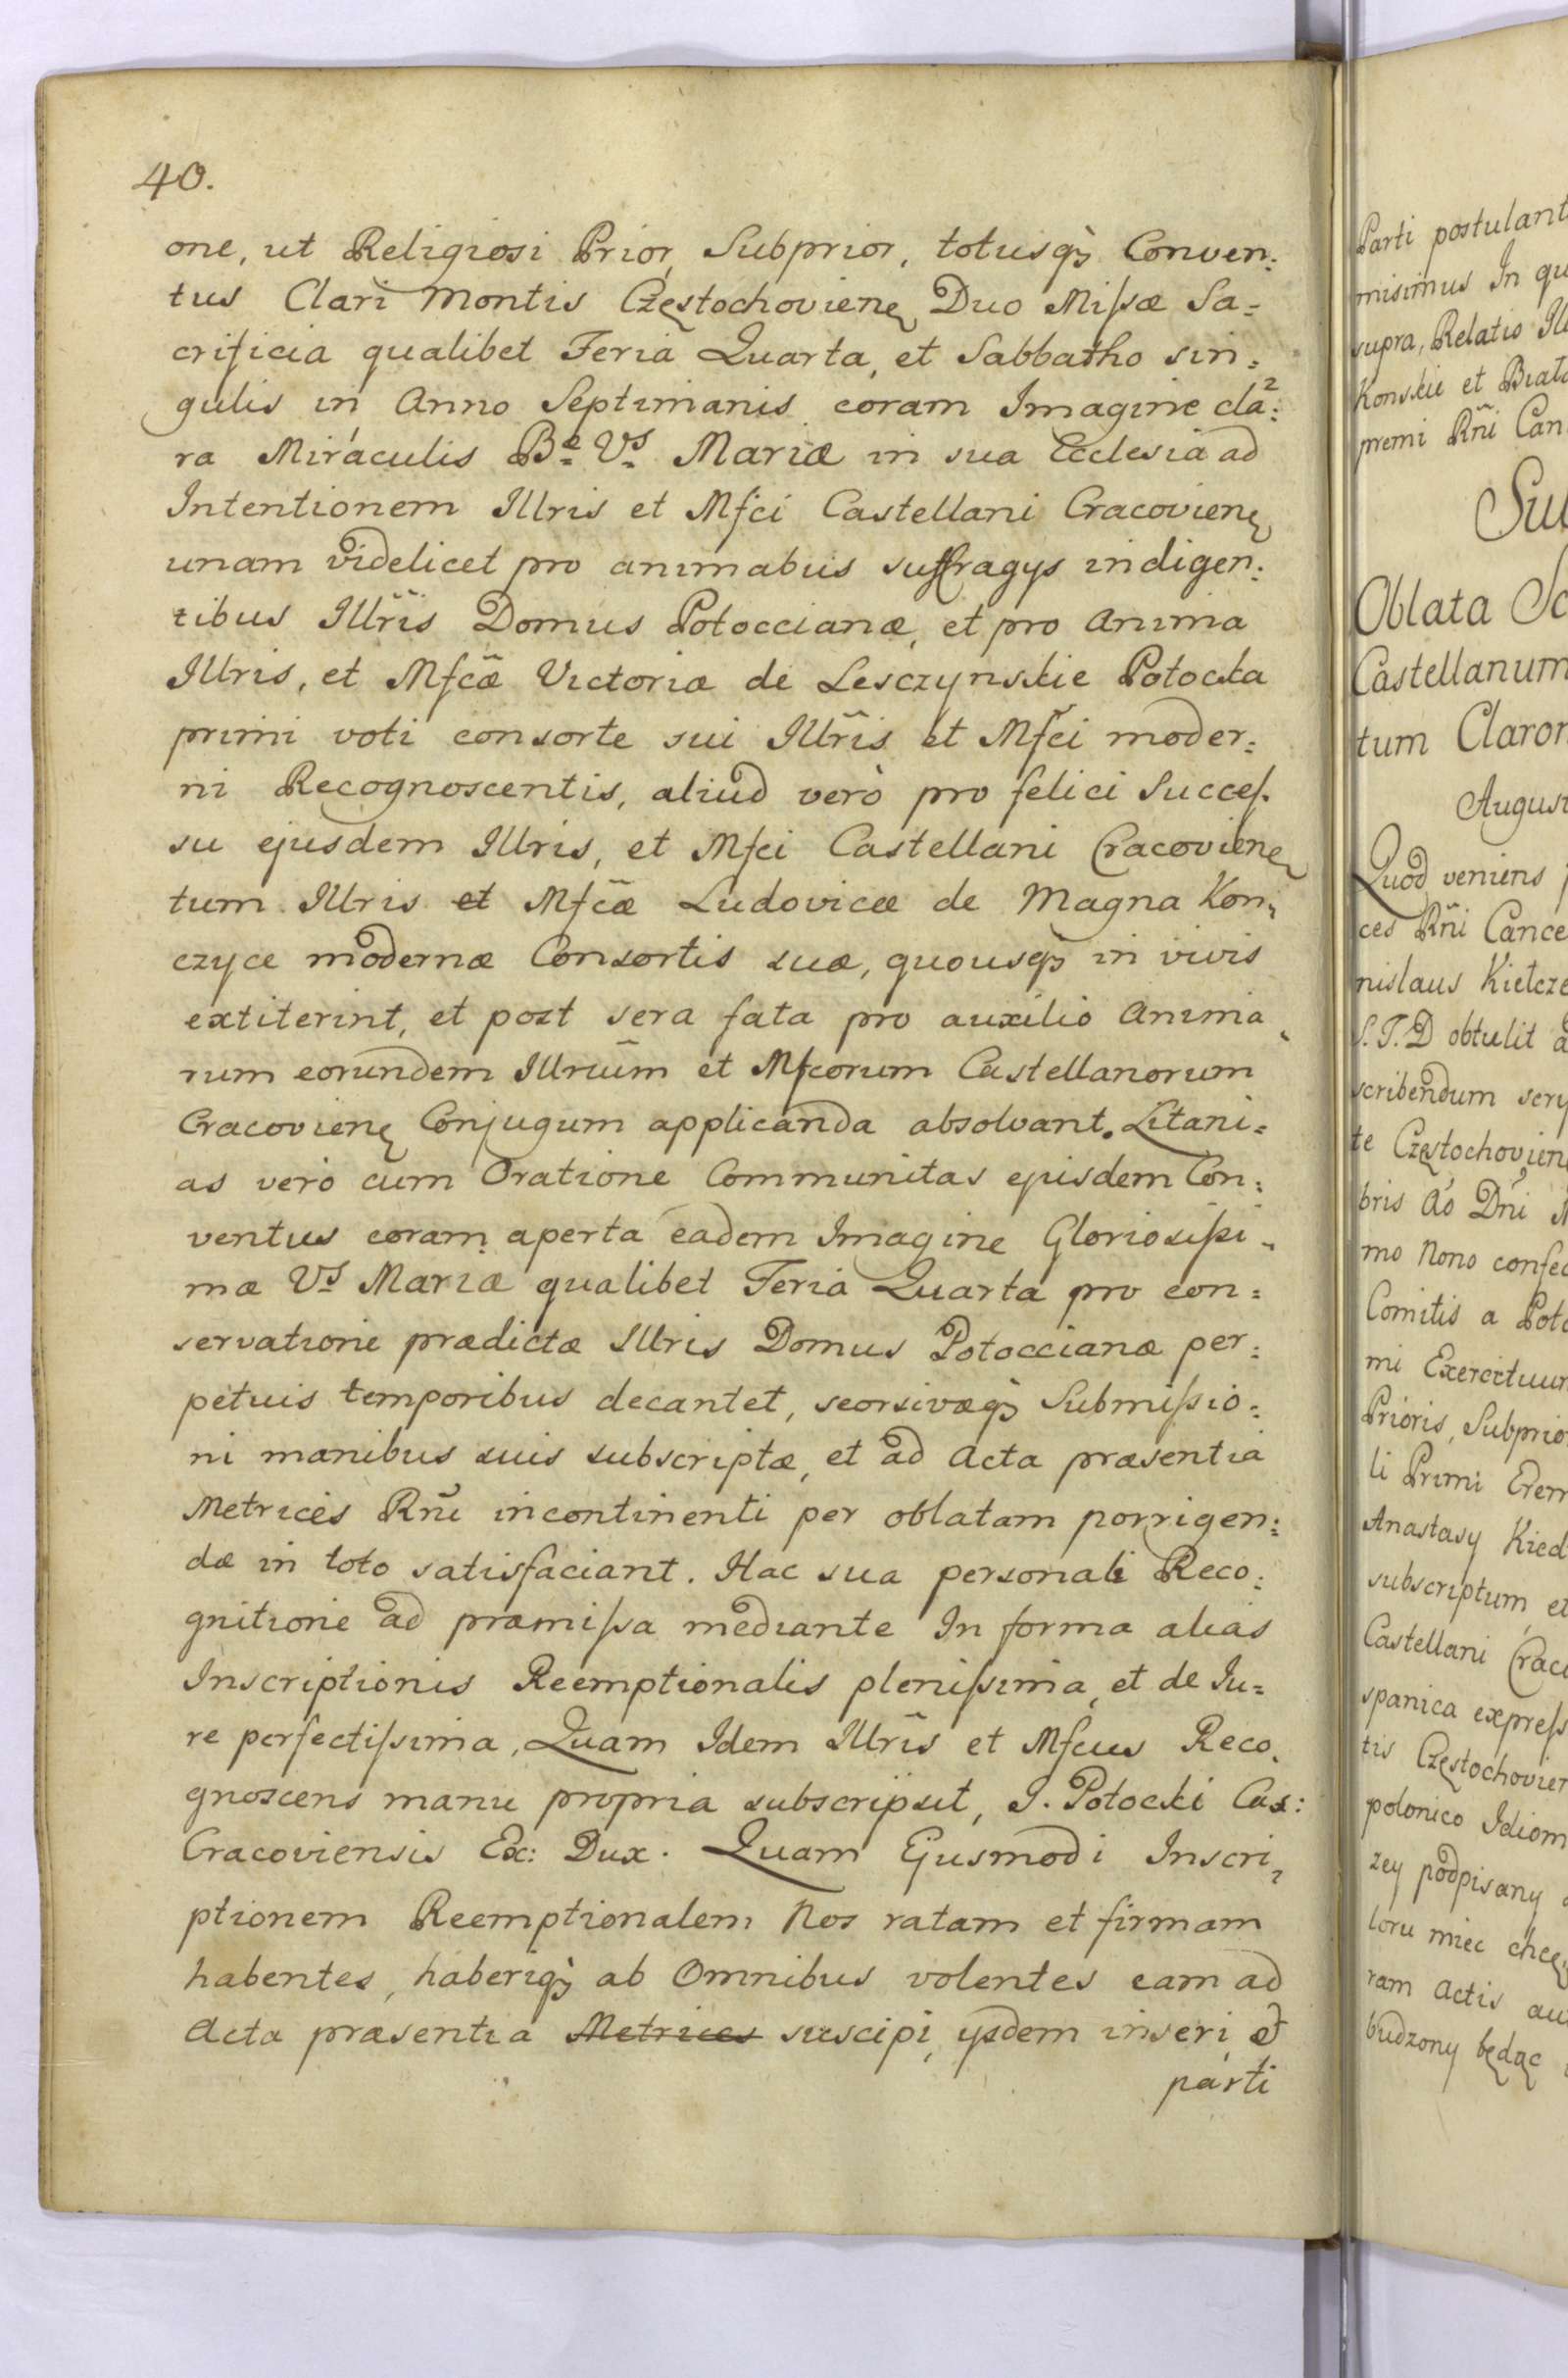 40.
one, ut Religiosi Prior, Subprior, totusq₃ Conven:
tus Clari Montis Częstochovienę Duo Missæ Sa=
crificia qualibet Feria Quarta, et Sabbatho sin:
gulis in Anno Septimanis coram Imagine cla:
ra Miraculis Bæ Vs Mariæ in sua Ecclesia ad
Intentionem Illris et Mfci Castellani Cracovienę
unam videlicet pro animabus suffragys indigen:
tibus Illris Domus Potoccianæ, et pro Anima
Illris, et Mfcæ Victoriæ de Lesczynskie Potocka
primi voti consorte sui Illris et Mfci moder:
ni Recognoscentis, aliud verò pro felici Succes.
su ejusdem Illris, et Mfci Castellani Cracovienę
tum Illris et Mfcæ Ludovicæ de Magna Kon:
czyce modernæ Consortis suæ, quousq₃ in vivis
extiterint, et post sera fata pro auxilio Anima
rum eorundem Illrium et Mfcorum Castellanorum
Cracovienę Conjugum applicanda absolvant. Litani=
as verò cum Oratione Communitas ejusdem Con:
ventus coram aperta eadem Imagine Gloriosissi-
mæ Vs Mariæ qualibet Feria Quarta pro con:
servatione prædictæ Illris Domus Potoccianæ per:
petuis temporibus decantet, seorsivæq₃ Submissio:
ni manibus suis subscriptæ, et ad Acta præsentia
Metrices Rñi incontinenti per oblatam porrigen:
dæ in toto satisfaciant. Hac sua personali Reco:
gnitione ad præmissa mediante In forma alias
Inscriptionis Reemptionalis plenissima, et de Ju=
re perfectissima, Quam Idem Illris et Mfcus Reco.
gnoscens manu propria subscripsit, J. Potocki Cas:
Cracoviensis Ex: Dux. Quam Ejusmodi Inscri,
ptionem Reemptionalem Nos ratam et firmam
habentes, haberiq₃ ab Omnibus volentes eam ad
Acta præsentia Metrices suscipi, ysdem inseri, et
parti
Parti postulant
misimus In qu
supra, Relatio Ill
Konskie et Biał
premi Rñi Can
Sul
Oblata Sc
Castellanum
tum Claro
August
Quod veniens
ces Rñi Cance
nislaus Kiełcze
S.T.D obtulit a
scribendum scri
te Częstochovien
bris Aó Dñi
mo Nono confec
Comitis a Poto
mi Exercituum
Prioris, Subprio
li Primi Erem
Anastasy Kied
subscriptum, et
Castellani Crac
spanica express
tis Częstochovien
polonico Idiom
zey podpisany
loru miec chcę
ram Actis au
budzony będąc